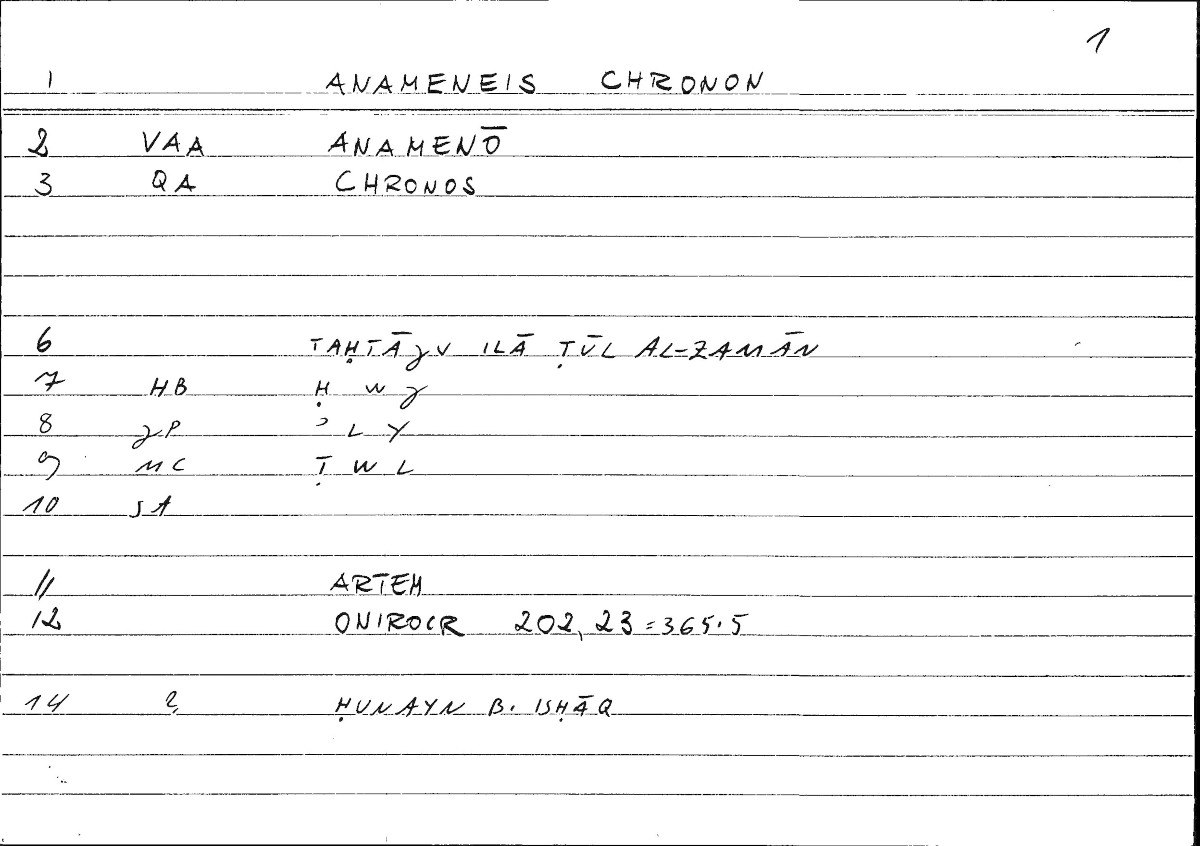 1
1 ANAMENEIS CHRONON
2 VAA ANAMENŌ
3 QA CHRONOS
6 TAḤTĀJU ILĀ ṬŪL AL-ZAMĀN
7 HB Ḥ W J
8 JP ʾ L Y
9 MC Ṭ W L
10 SA
11 ARTEM
12 ONIROCR 202,23=365.5
14 2 ḤUNAYN B. ISḤĀQ